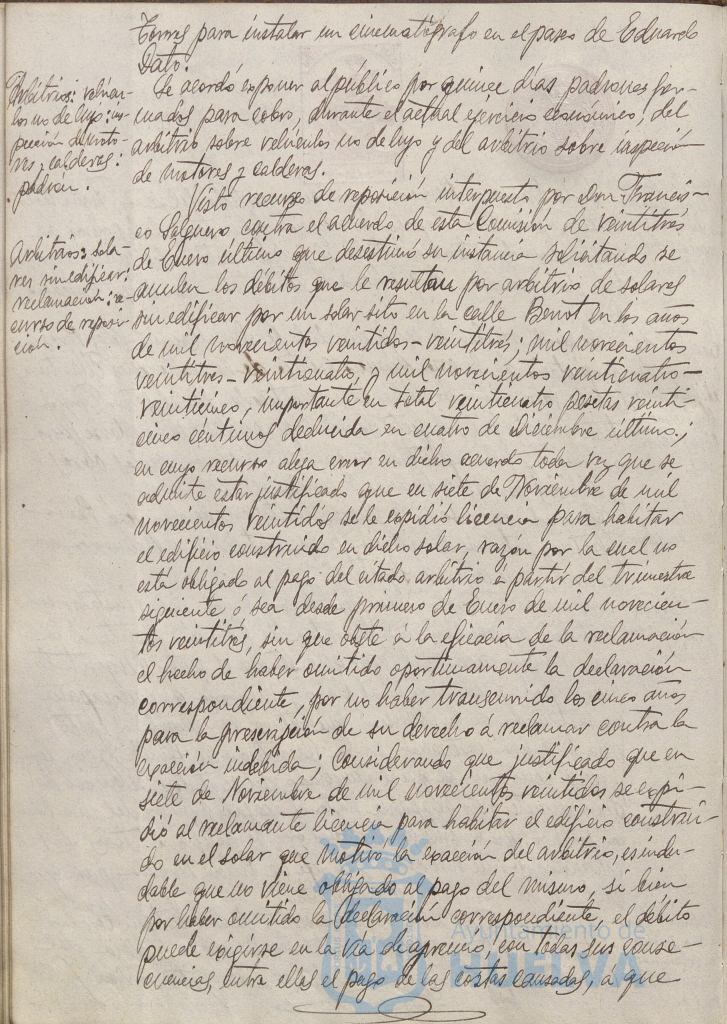 Torres para instalar un cinematógrafo en el paseo de Eduardo
Dato.
Arbitrios: vehícu-
los no de lujo: ins-
pección de moto-
res y calderas:
padrón.
Se acordó exponer al público por quince días padrones for-
mados para cobro, durante el actual ejercicio económico, del
arbitrio sobre vehículos no de lujo y del arbitrio sobre inspección
de motores y calderas.
Arbitrios: sola-
res sin edificar:
reclamación: re-
curso de reposi-
ción.
Visto recurso de reposición interpuesto por Don Francis-
co Salguero contra el acuerdo de esta Comisión de veintitrés
de Enero último que desestimó su instancia solicitando se
anulen los débitos que le resultan por arbitrio de solares
sin edificar por un solar sito en la calle Benot en los años
de mil novecientos veintidos-veintitrés; mil novecientos
veintitres-veinticuatro, y mil novecientos veinticuatro-
veinticinco, importante en total veinticuatro pesetas veinti-
cinco céntimos deducida en cuatro de Diciembre último;
en cuyo recurso alega error en dicho acuerdo toda vez que se
admite estar justificado que en siete de Noviembre de mil
novecientos veintidos se le expidió licencia para habitar
el edificio construido en dicho solar, razón por la cual no
está obligado al pago del citado arbitrio á partir del trimestre
siguiente ó sea desde primero de Enero de mil novecien-
tos veintitrés, sin que obste á la eficacia de la reclamación
el hecho de haber omitido oportunamente la declaración
correspondiente, por no haber transcurrido los cinco años
para la prescripción de su derecho á reclamar contra la
exacción indebida; Considerando que justificado que en
siete de Noviembre de mil novecientos veintidos se expi-
dió al reclamante licencia para habitar el edificio construi-
do en el solar que motivó la exacción del arbitrio, es indu-
dable que no viene obligado al pago del mismo, si bien
por haber omitido la declaración correspondiente, el débito
puede exigirse en la vía de apremio, con todas sus conse-
cuencias, entre ellas el pago de las costas causadas, á que
Ayuntamiento de
HUELVA